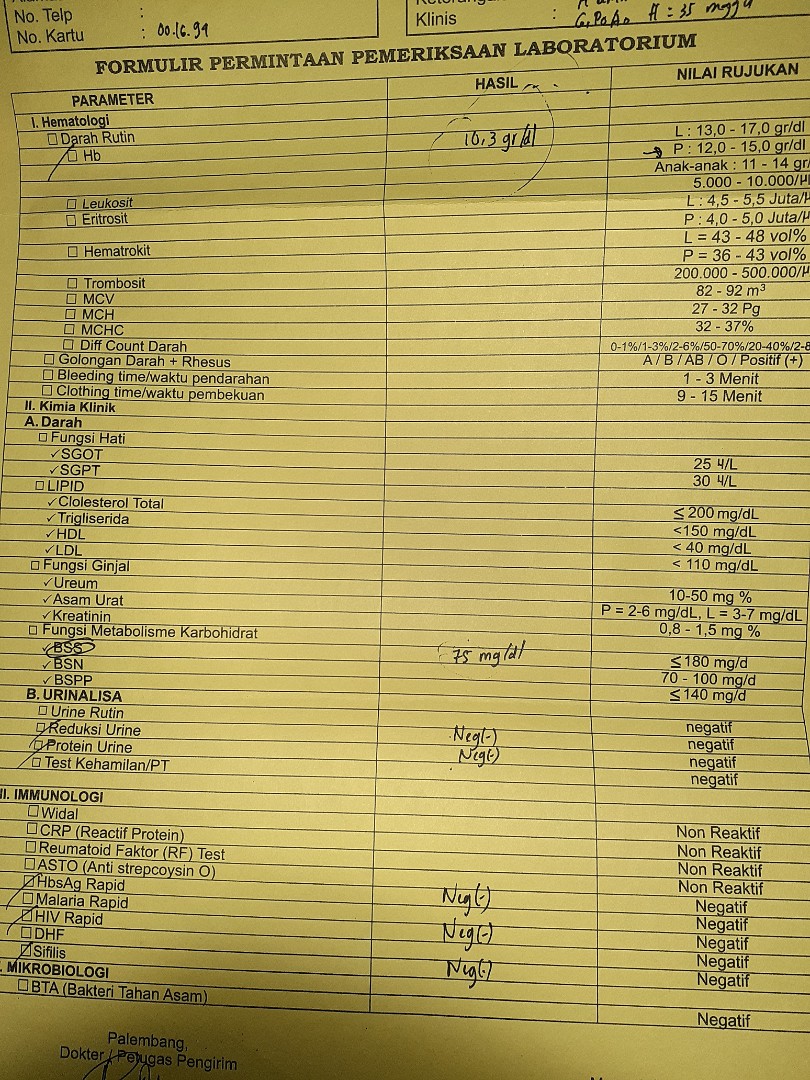 No. Telp :
No. Kartu : 00.16.91
Klinis :
35 mggu
FORMULIR PERMINTAAN PEMERIKSAAN LABORATORIUM
PARAMETER HASIL NILAI RUJUKAN
I. Hematologi
Darah Rutin L : 13,0 - 17,0 gr/dl
Hb 10,3 gr/dl P : 12,0 - 15,0 gr/dl
Anak-anak : 11 - 14 gr/
Leukosit 5.000 - 10.000/µ
Eritrosit L : 4,5 - 5,5 Juta/µ
P : 4,0 - 5,0 Juta/µ
Hematrokit L = 43 - 48 vol%
P = 36 - 43 vol%
Trombosit 200.000 - 500.000/µ
MCV 82 - 92 m³
MCH 27 - 32 Pg
MCHC 32 - 37%
Diff Count Darah 0-1%/1-3%/2-6%/50-70%/20-40%/2-8
Golongan Darah + Rhesus A / B / AB / O / Positif (+)
Bleeding time/waktu pendarahan 1 - 3 Menit
Clothing time/waktu pembekuan 9 - 15 Menit
II. Kimia Klinik
A. Darah
Fungsi Hati
✓SGOT 25 4/L
✓SGPT 30 4/L
LIPID
✓Clolesterol Total ≤ 200 mg/dL
✓Trigliserida <150 mg/dL
✓HDL < 40 mg/dL
✓LDL < 110 mg/dL
Fungsi Ginjal
✓Ureum 10-50 mg %
✓Asam Urat P = 2-6 mg/dL, L = 3-7 mg/dL
✓Kreatinin 0,8 - 1,5 mg %
Fungsi Metabolisme Karbohidrat
✓BSS 75 mg/dl ≤180 mg/d
✓BSN 70 - 100 mg/d
✓BSPP ≤140 mg/d
B. URINALISA
Urine Rutin negatif
Reduksi Urine Neg(-) negatif
Protein Urine Neg(-) negatif
Test Kehamilan/PT negatif
II. IMMUNOLOGI
Widal Non Reaktif
CRP (Reactif Protein) Non Reaktif
Reumatoid Faktor (RF) Test Non Reaktif
ASTO (Anti strepcoysin O) Non Reaktif
HbsAg Rapid Neg(-) Negatif
Malaria Rapid Negatif
HIV Rapid Neg(-) Negatif
DHF Negatif
Sifilis Neg(-) Negatif
. MIKROBIOLOGI
BTA (Bakteri Tahan Asam) Negatif
Palembang,
Dokter / Petugas Pengirim